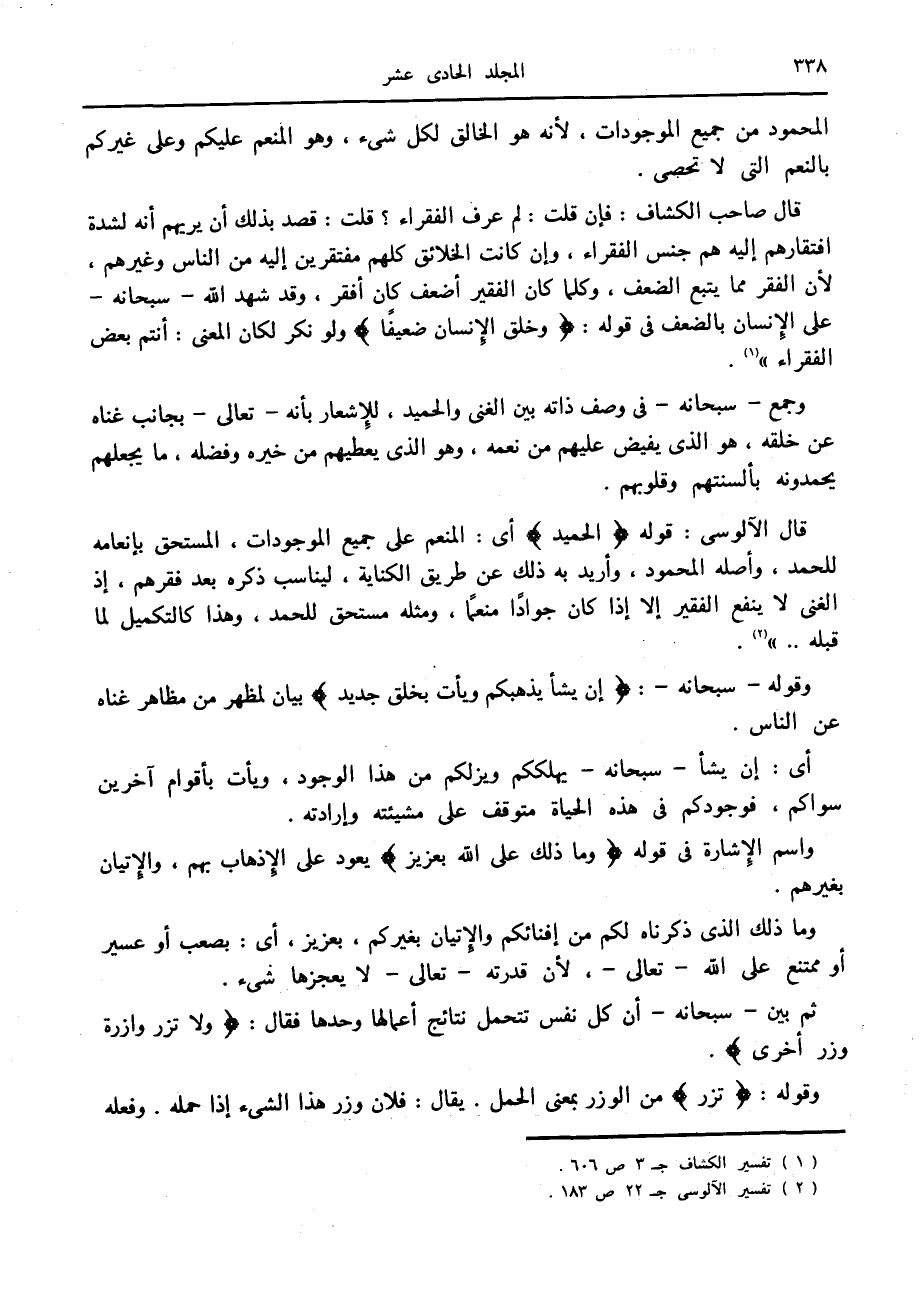 ٣٣٨
المجلد الحادى عشر
المحمود من جميع الموجودات ، لأنه هو الخالق لكل شىء ، وهو المنعم عليكم وعلى غيركم
بالنعم التى لا تحصى .
قال صاحب الكشاف : فإن قلت : لم عرف الفقراء ؟ قلت : قصد بذلك أن يريهم أنه لشدة
افتقارهم إليه هم جنس الفقراء ، وإن كانت الخلائق كلهم مفتقرين إليه من الناس وغيرهم ،
لأن الفقر مما يتبع الضعف ، وكلما كان الفقير أضعف كان أفقر ، وقد شهد الله – سبحانه –
على الإنسان بالضعف فى قوله : ﴿ وخلق الإنسان ضعيفًا ﴾ ولو نكر لكان المعنى : أنتم بعض
الفقراء »(١) .
وجمع – سبحانه – فى وصف ذاته بين الغنى والحميد ، للإشعار بأنه – تعالى – بجانب غناه
عن خلقه ، هو الذى يفيض عليهم من نعمه ، وهو الذى يعطيهم من خيره وفضله ، ما يجعلهم
يحمدونه بألسنتهم وقلوبهم .
قال الآلوسى : قوله ﴿ الحميد ﴾ أى : المنعم على جميع الموجودات ، المستحق بإنعامه
للحمد ، وأصله المحمود ، وأريد به ذلك عن طريق الكناية ، ليناسب ذكره بعد فقرهم ، إذ
الغنى لا ينفع الفقير إلا إذا كان جوادًا منعمًا ، ومثله مستحق للحمد ، وهذا كالتكميل لما
قبله .. »(٢) .
وقوله – سبحانه – : ﴿ إن يشأ يذهبكم ويأت بخلق جديد ﴾ بيان لمظهر من مظاهر غناه
عن الناس .
أى : إن يشأ – سبحانه – يهلككم ويزلكم من هذا الوجود ، ويأت بأقوام آخرين
سواكم ، فوجودكم فى هذه الحياة متوقف على مشيئته وإرادته .
واسم الإشارة فى قوله ﴿ وما ذلك على الله بعزيز ﴾ يعود على الإذهاب بهم ، والإتيان
بغيرهم .
وما ذلك الذى ذكرناه لكم من إفنائكم والإتيان بغيركم ، بعزيز ، أى : بصعب أو عسير
أو ممتنع على الله – تعالى – ، لأن قدرته – تعالى – لا يعجزها شىء .
ثم بين – سبحانه – أن كل نفس تتحمل نتائج أعمالها وحدها فقال : ﴿ ولا تزر وازرة
وزر أخرى ﴾ .
وقوله : ﴿ تزر ﴾ من الوزر بمعنى الحمل . يقال : فلان وزر هذا الشىء إذا حمله . وفعله
( ١ ) تفسير الكشاف جـ ٣ ص ٦٠٦ .
( ٢ ) تفسير الآلوسى جـ ٢٢ ص ١٨٣ .